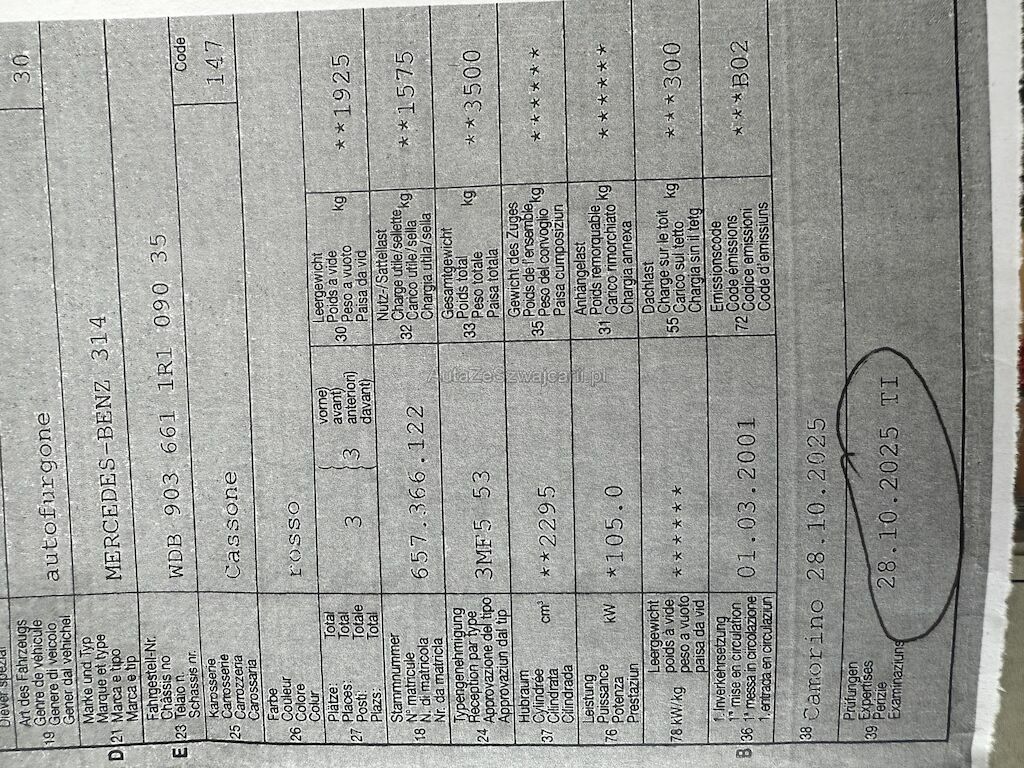 30
Art des Fahrzeugs
Genre de véhicule
19 Genere di veicolo autofurgone
Gener dal vehichel
Marke und Typ
Marque et type
D 21 Marca e tipo MERCEDES-BENZ 314
Marca e tip
Fahrgestell-Nr. Code
Châssis no
E 23 Telaio n. WDB 903 661 1R1 090 35 147
Schassis nr.
Karosserie
Carrosserie
25 Carrozzeria Cassone
Carossaria
Farbe
Couleur
26 Colore rosso
Colur
Plätze: Total vorne)
Places: Total avant)
27 Posti: Totale 3 3 anteriori)
Plazs: Total davant)
Leergewicht
Poids à vide
30 Peso a vuoto kg **1925
Paisa da vid
Stammnummer
N° matricule
18 N. di matricola 657.366.122
Nr. da matricla
Nutz-/Sattellast
Charge utile/sellette
32 Carico utile/sella kg **1575
Chargia utila/sella
Typengenehmigung
Réception par type
24 Approvazione del tipo 3MF5 53
Approvaziun dal tip
Gesamtgewicht
Poids total
33 Peso totale kg **3500
Paisa totala
Hubraum
Cylindrée
37 Cilindrata cm³ **2295
Cilindrada
Gewicht des Zuges
Poids de l'ensemble
35 Peso del convoglio kg ******
Paisa cumposiziun
Leistung
Puissance
76 Potenza kW *105.0
Prestaziun
Anhängelast
Poids remorquable
31 Carico rimorchiato kg ******
Chargia annexa
Leergewicht
poids à vide
78 kW/kg peso a vuoto *******
paisa da vid
Dachlast
Charge sur le toit
55 Carico sul tetto kg ***300
Chargia sin il tetg
1. Inverkehrsetzung
1re mise en circulation
B 36 1a messa in circolazione 01.03.2001
1. entrada en circulaziun
Emissionscode
Code émissions
72 Codice emissioni ***B02
Code d'emissiuns
38 Camorino 28.10.2025
Prüfungen
Expertises
39 Perizie 28.10.2025 TI
Examinaziuns
AutaZeSzwajcarii.pl